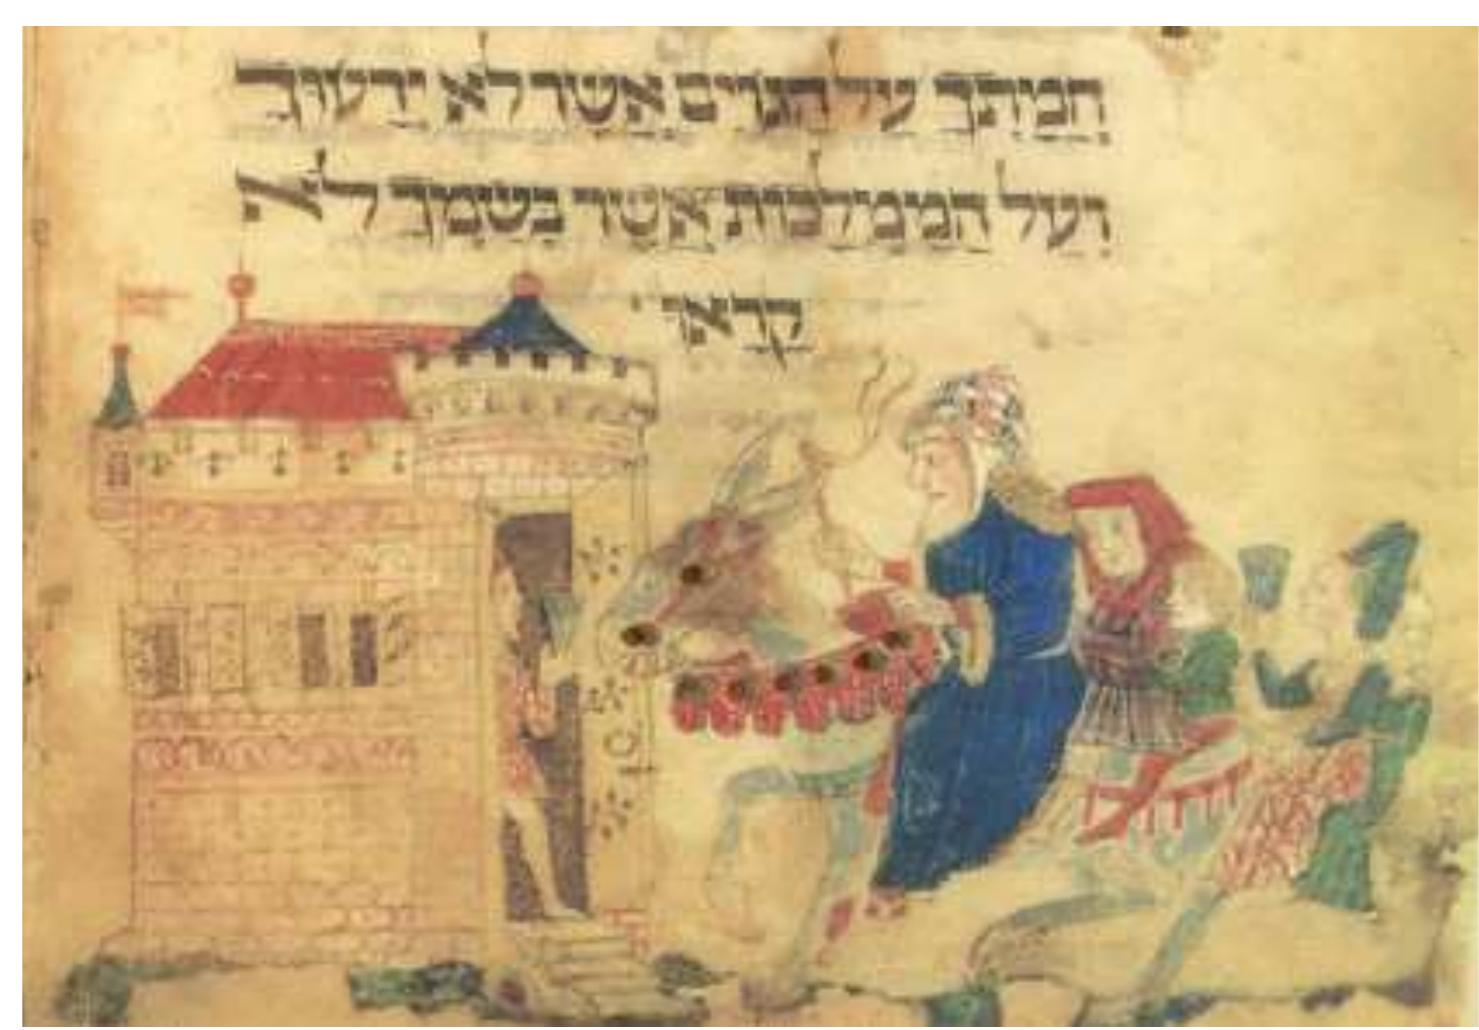 חמתך על הגוים אשר לא ידעוך
ועל הממלכות אשר בשמך לא
קראו